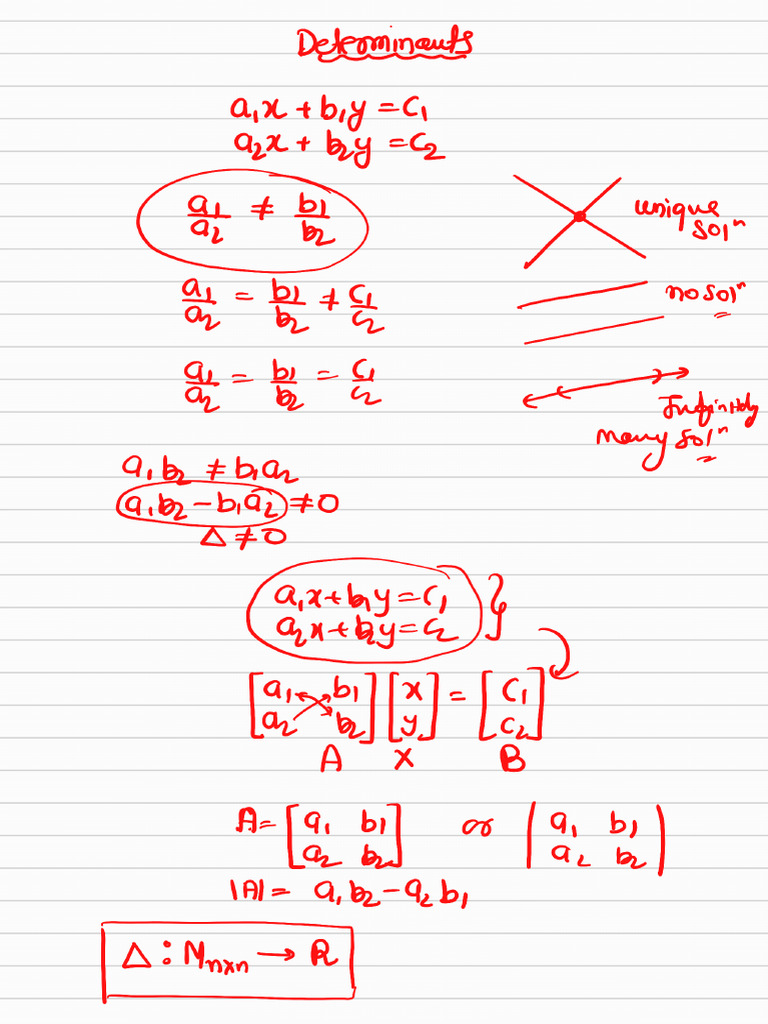 Determinants
a₁x + b₁y = c₁
a₂x + b₂y = c₂
a₁/a₂ ≠ b₁/b₂ unique solⁿ
a₁/a₂ = b₁/b₂ ≠ c₁/c₂ no solⁿ
a₁/a₂ = b₁/b₂ = c₁/c₂ Infinitely
many solⁿ
a₁b₂ ≠ b₁a₂
a₁b₂ − b₁a₂ ≠ 0
Δ ≠ 0
a₁x + b₁y = c₁ }
a₂x + b₂y = c₂
[a₁ b₁; a₂ b₂] [x; y] = [c₁; c₂]
A X B
A = [a₁ b₁; a₂ b₂] or |a₁ b₁; a₂ b₂|
|A| = a₁b₂ − a₂b₁
Δ : Mₙₓₙ → R